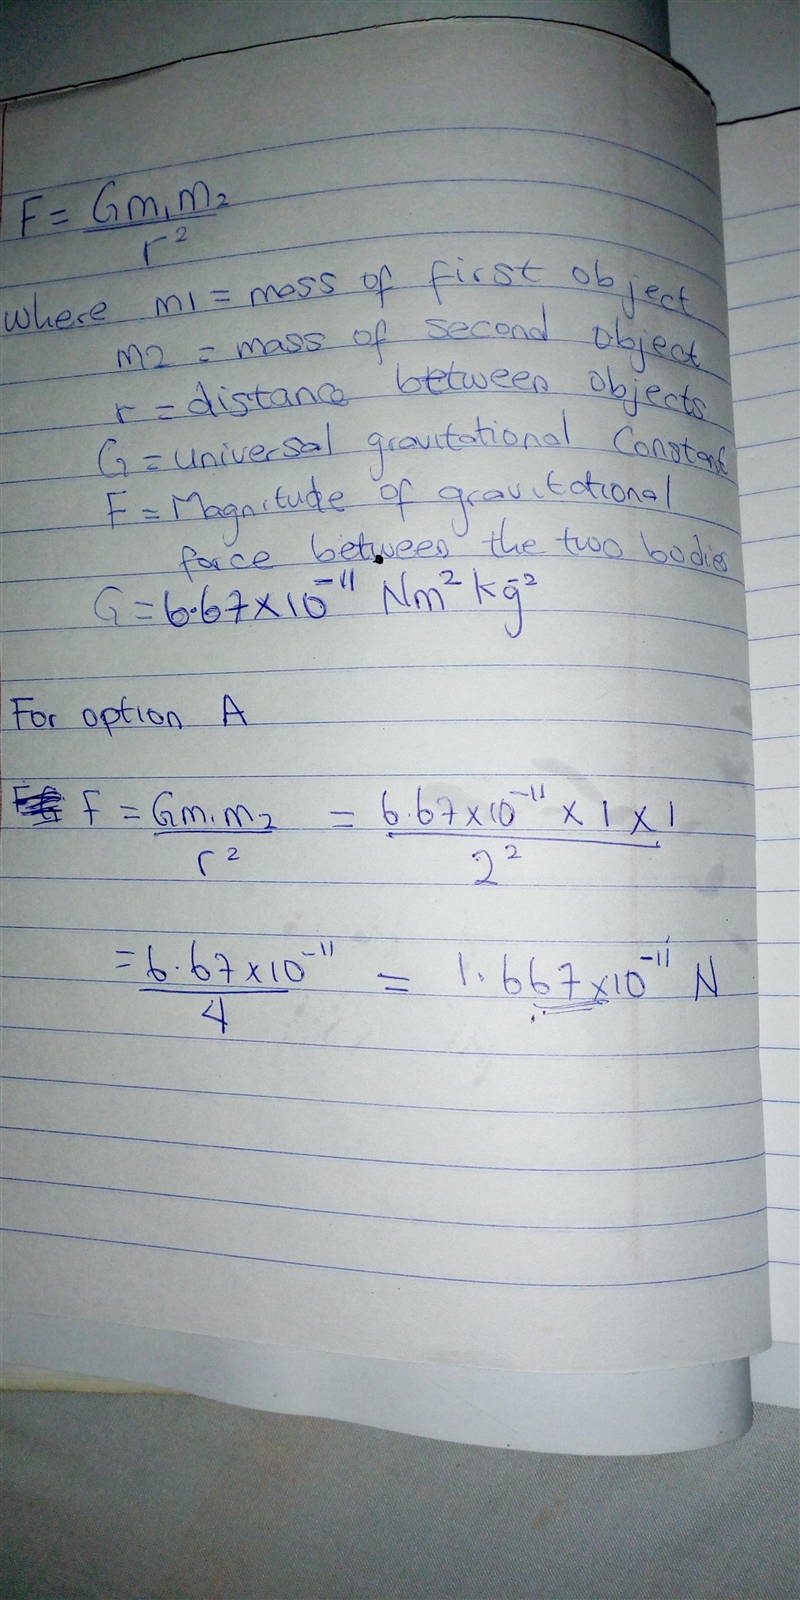 F = Gm₁m₂
r²
where m1 = mass of first object
m2 = mass of second object
r = distance between objects
G = universal gravitational Constant
F = Magnitude of gravitational
force between the two bodies
G = 6.67 x 10⁻¹¹ Nm² kg⁻²
For option A
F = Gm₁m₂ = 6.67 x 10⁻¹¹ x 1 x 1
r² 2²
= 6.67 x 10⁻¹¹ = 1.667 x 10⁻¹¹ N
4